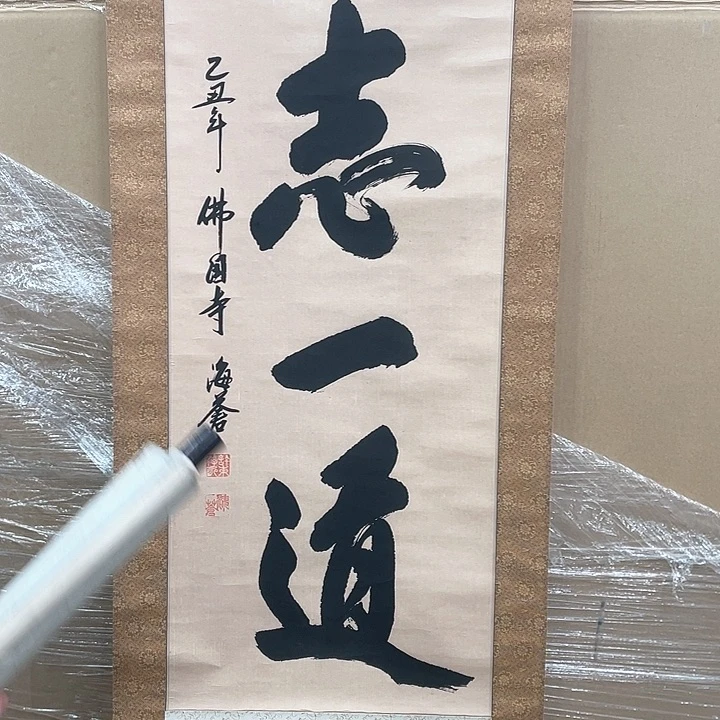 志一道
乙丑年 佛國寺 海蒼